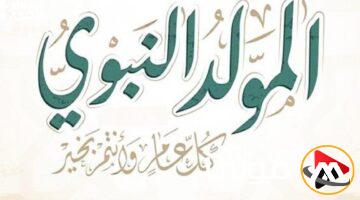 المَوْلِدُ النَّبَوِيّ
كُلُّ عَامٍ وَأَنْتُمْ بِخَيْرٍ